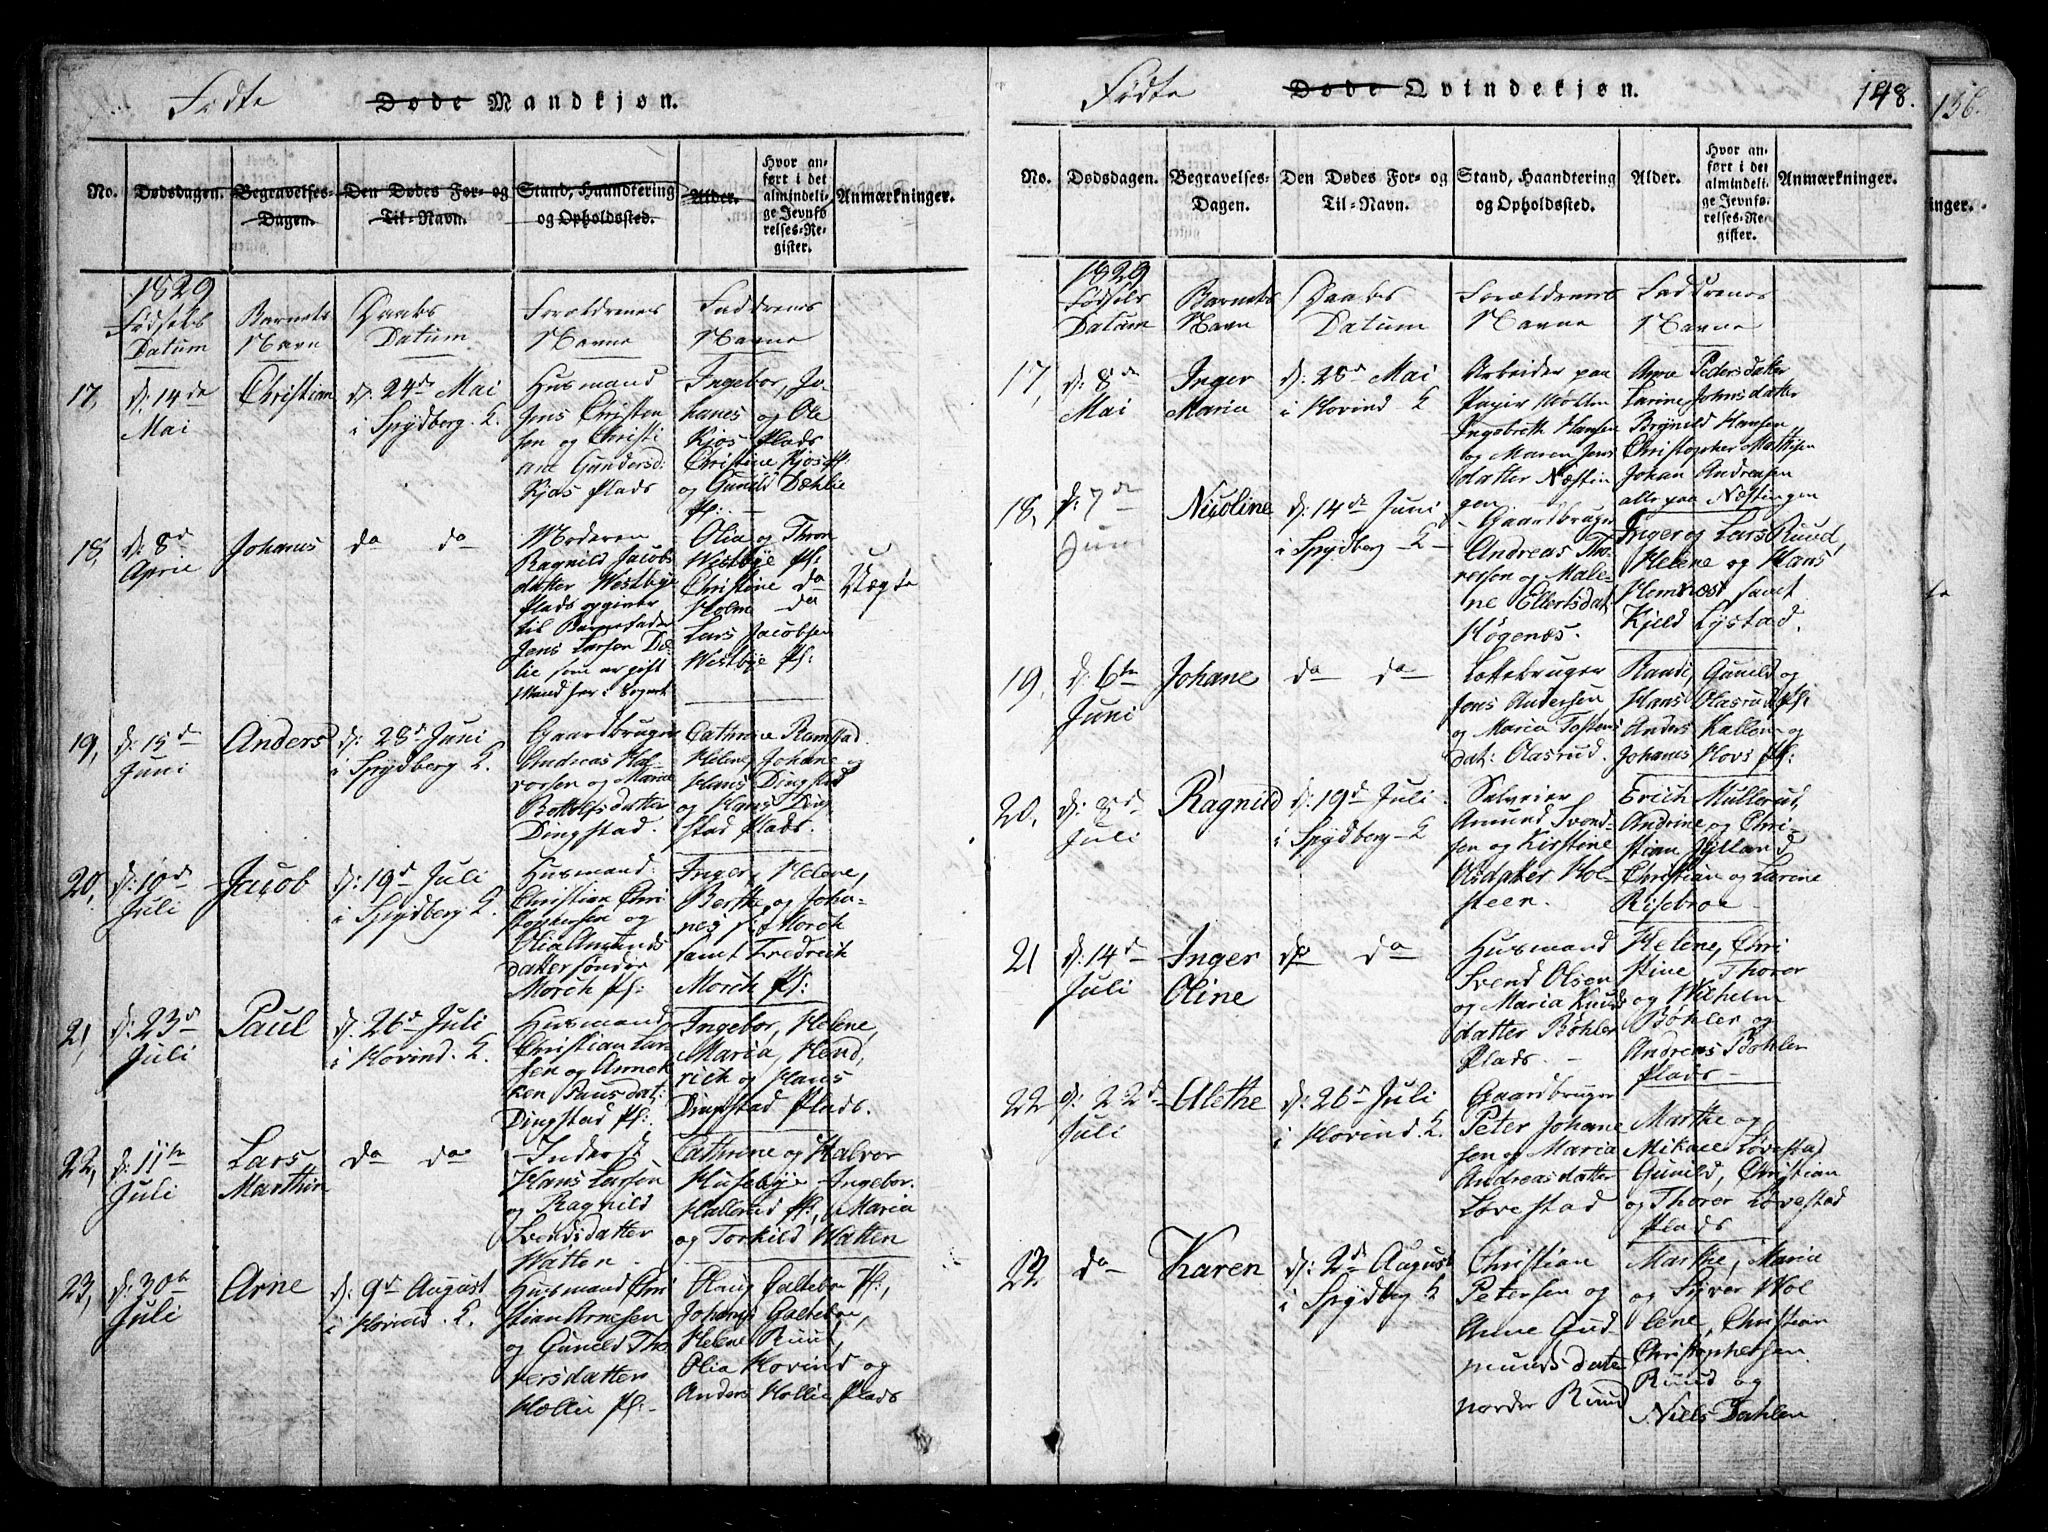 Fødte Døde Mandkjøn.
No. Dødsdagen. Begravelses-Dagen. Den Dødes For- og Til-Navn. Stand, Haandtering og Opholdssted. Alder. Hvor anført i det almindelige Jevnførelses-Register. Anmærkninger.
1829
Fødsels Datum Barnets Navn Daabs Datum Forældrenes Navne Faddrenes Navne
17, d: 14de Mai Christian d: 24de Mai i Spydberg K.
Husmand
Jens Christen
sen og Christi
ane Gundersd:
Kjos Plads
Ingebor, Jo-
hanes og Ole
Kjos Plads
Christine Kjos pl:
og Gunild Dæhlie
pl:
18, d: 8d April Johanes do do
Moderen
Ragnild Jacobs
datter Westbye
Plads opgiver
til Barnefader
Jens Larsen Dæ-
lie som er gift
Mand her i Sognet
Olia og Thron
Westbye pl:
Christine do
Holm do
Lars Jacobsen
Westbye pl:
Uægte
19, d: 15d Juni Anders d: 28d Juni i Spydberg K.
Gaardbruger
Andreas Hal-
vorsen og Maria
Bottolfsdatter
Dingstad.
Cathrine Ramstad.
Helene, Johane og
Hans Dingstad
og Hans Ding
stad Plads.
20, d: 10d Juli Jacob d: 19d Juli i Spydberg K.
Husmand
Christian Chri
stophersen og
Olia Amunds
datter Søndre
Morch pl:
Inger, Helene,
Berthe og Joha-
nes s: Morch
samt Fredrich
Morch pl:
21, d: 23d Juli Paul d: 26d Juli i Hovind K.
Husmand
Christian Lar
sen og Annek
ken Pauls dat:
Dingstad pl:
Ingebor, Helene,
Maria, Hend,
rich og Hans
Dingstad Plads.
22, d: 11te Juli Lars Marthin do do
Inderst
Hans Larsen
og Ragnild
Svendsdatter
Watten.
Cathrine og Halvor
Husebye Ingebor.
Hallerud pl:, Maria
og Torkild Watten
23, d: 30te Juli Arne d: 9d August i Hovind K.
Husmand Chri
stian Arnesen
og Gunild Tho
versdatter
Hollie pl:
Olaug Galtebøe pl:,
Johanes Galtebøe,
Helene Ruud,
Olia Hovind og
Anders Hollie Plads
Fødte Døde Qvindekjøn. 148.
No. Dødsdagen. Begravelses-Dagen. Den Dødes For- og Til-Navn. Stand, Haandtering og Opholdssted. Alder. Hvor anført i det almindelige Jevnførelses-Register. Anmærkninger.
1829
Fødsels Datum Barnets Navn Daabs Datum Forældrenes Navne Faddrenes Navne
17, d: 8de Mai Inger Maria d: 28de Mai i Hovind K
Arbeider paa
Papir Møllen
Ingebreth Hansen
og Maren Jens
datter Næstin
gen
Anne Pedersdatter
Karine Johnsdatter
Brynild Hansen
Christopher Mathisen
Johan Andreasen
alle paa Næstingen
18, d: 7de Juni Nicoline d: 14de Juni i Spydberg K
Gaardbruger
Andreas Tho-
resen og Male-
ne Ellertsdat:
Høgenæs.
Inger og Lars Ruud,
Helene og Hans
Hemnæs samt
Kjeld Lystad.
19, d: 6te Juni Johane do do
Lottebruger
Jens Andersen
og Maria Tostens
dat: Olasrud.
Randi Gunild og
Hans Olasrud pl:
Anders Kallem og
Johanes Hovs pl:
20, d: 2d Juli Ragnild d: 19d Juli i Spydberg K
Selveier
Amund Svend-
sen og Kirstine
Olsdatter Hol-
steen.
Erich Mullerud,
Andrine og Chri-
stian Jylland
Christian og Karine
Risebroe
21 d: 14d Juli Inger Oline do do
Husmand
Svend Olsen
og Maria Knuds
datter Bøhler
Plads.
Helene, Chri
stine Thorer
og Wilhelm
Bøhler og
Andreas Bøhler
Plads
22 d: 22d Juli Alethe d: 26d Juli i Hovind K.
Gaardbruger
Peter Johane
sen og Maria
Andreasdatter
Løvestad
Marthe og
Mikael Løvestad
Gunild, Christian
og Thorer Løvestad
Plads
23 do Karen d: 2d August i Spydberg K
Christian
Petersen og
Anne Gud
munds datter
nordre Ruud
Marthe, Maria
og Syver Mol
lene, Christian
Christophersen.
Ruud og
Niels Dahlen
136.
inger.